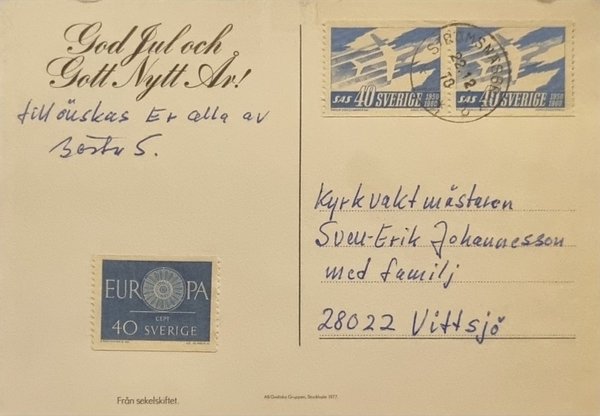 God Jul och
Gott Nytt År!
tillönskas Er alla av
Gösta S.
SAS 40 SVERIGE 1950 1960
SAS 40 SVERIGE 1950 1960
22 12
Kyrkvaktmästaren
Sven-Erik Johannesson
med familj
28022 Vittsjö
EUROPA
CEPT
40 SVERIGE
Från sekelskiftet.
AB Grafiska Gruppen, Stockholm 1977.